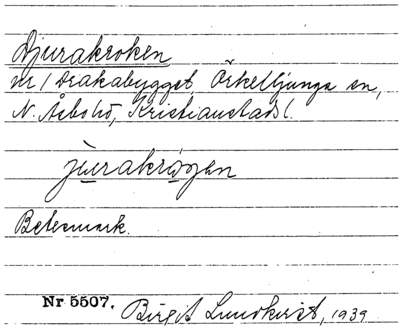 Djurakroken
m/ Drakabygget, Örkelljunga sn,
N. Åsbo hd, Kristianstads l.
jurakrogen
Betesmark.
Nr 5507. Birgit Lundkvist, 1939